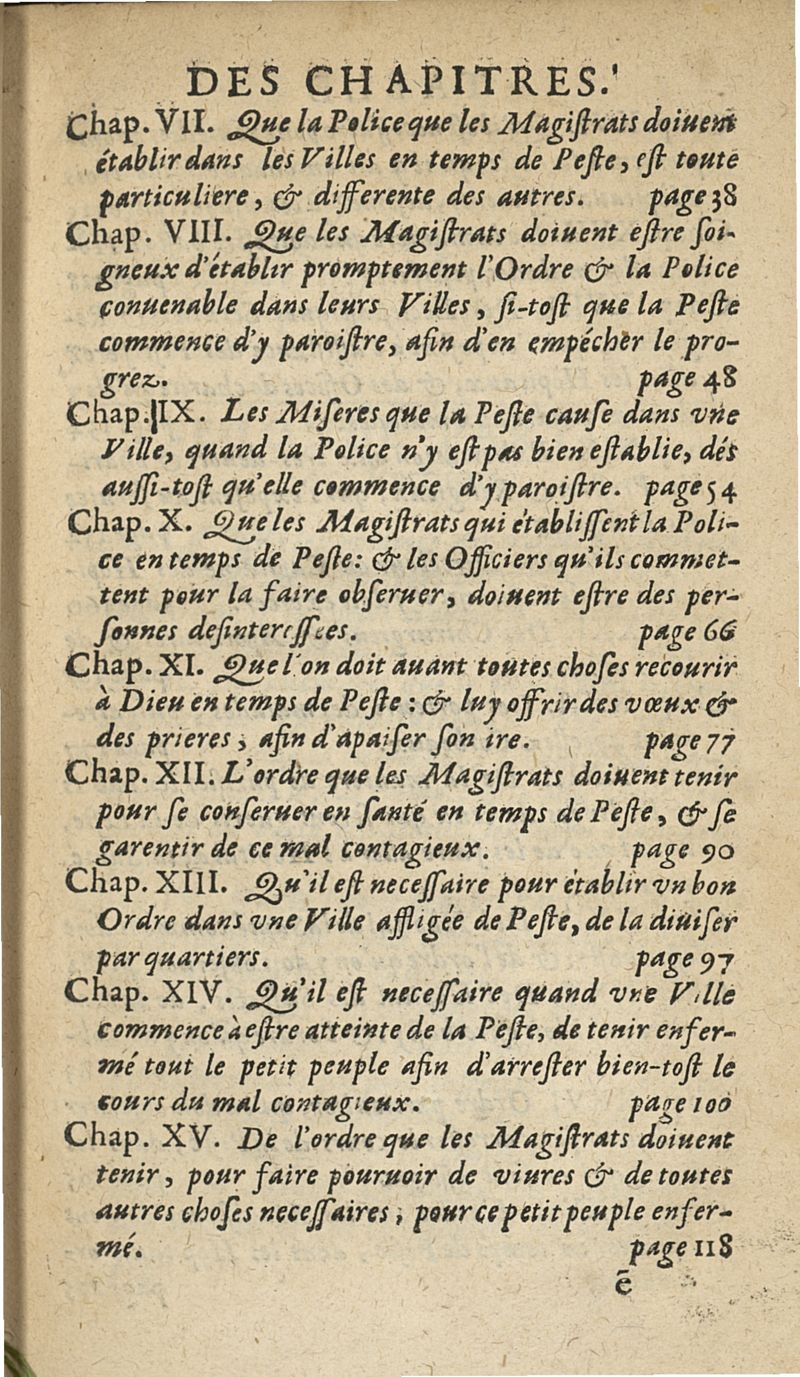 DES CHAPITRES.
Chap. VII. Que la Police que les Magiſtrats doiuent
établir dans les Villes en temps de Peſte, eſt toute
particuliere, & differente des autres. page 38
Chap. VIII. Que les Magiſtrats doiuent eſtre ſoi-
gneux d'établir promptement l'Ordre & la Police
conuenable dans leurs Villes, ſi-toſt que la Peſte
commence d'y paroiſtre, afin d'en empécher le pro-
grez. page 48
Chap. IX. Les Miſeres que la Peſte cauſe dans vne
Ville, quand la Police n'y eſt pas bien eſtablie, dés
auſſi-toſt qu'elle commence d'y paroiſtre. page 54
Chap. X. Que les Magiſtrats qui établiſſent la Poli-
ce en temps de Peſte: & les Officiers qu'ils commet-
tent pour la faire obſeruer, doiuent eſtre des per-
ſonnes deſintereſſées. page 66
Chap. XI. Que l'on doit auant toutes choſes recourir
à Dieu en temps de Peſte : & luy offrir des vœux &
des prieres, afin d'apaiſer ſon ire. page 77
Chap. XII. L'ordre que les Magiſtrats doiuent tenir
pour ſe conſeruer en ſanté en temps de Peſte, & ſe
garentir de ce mal contagieux. page 90
Chap. XIII. Qu'il eſt neceſſaire pour établir vn bon
Ordre dans vne Ville affligée de Peſte, de la diuiſer
par quartiers. page 97
Chap. XIV. Qu'il eſt neceſſaire quand vne Ville
commence à eſtre atteinte de la Peſte, de tenir enfer-
mé tout le petit peuple afin d'arreſter bien-toſt le
cours du mal contagieux. page 100
Chap. XV. De l'ordre que les Magiſtrats doiuent
tenir, pour faire pouruoir de viures & de toutes
autres choſes neceſſaires, pour ce petit peuple enfer-
mé. page 118
ẽ